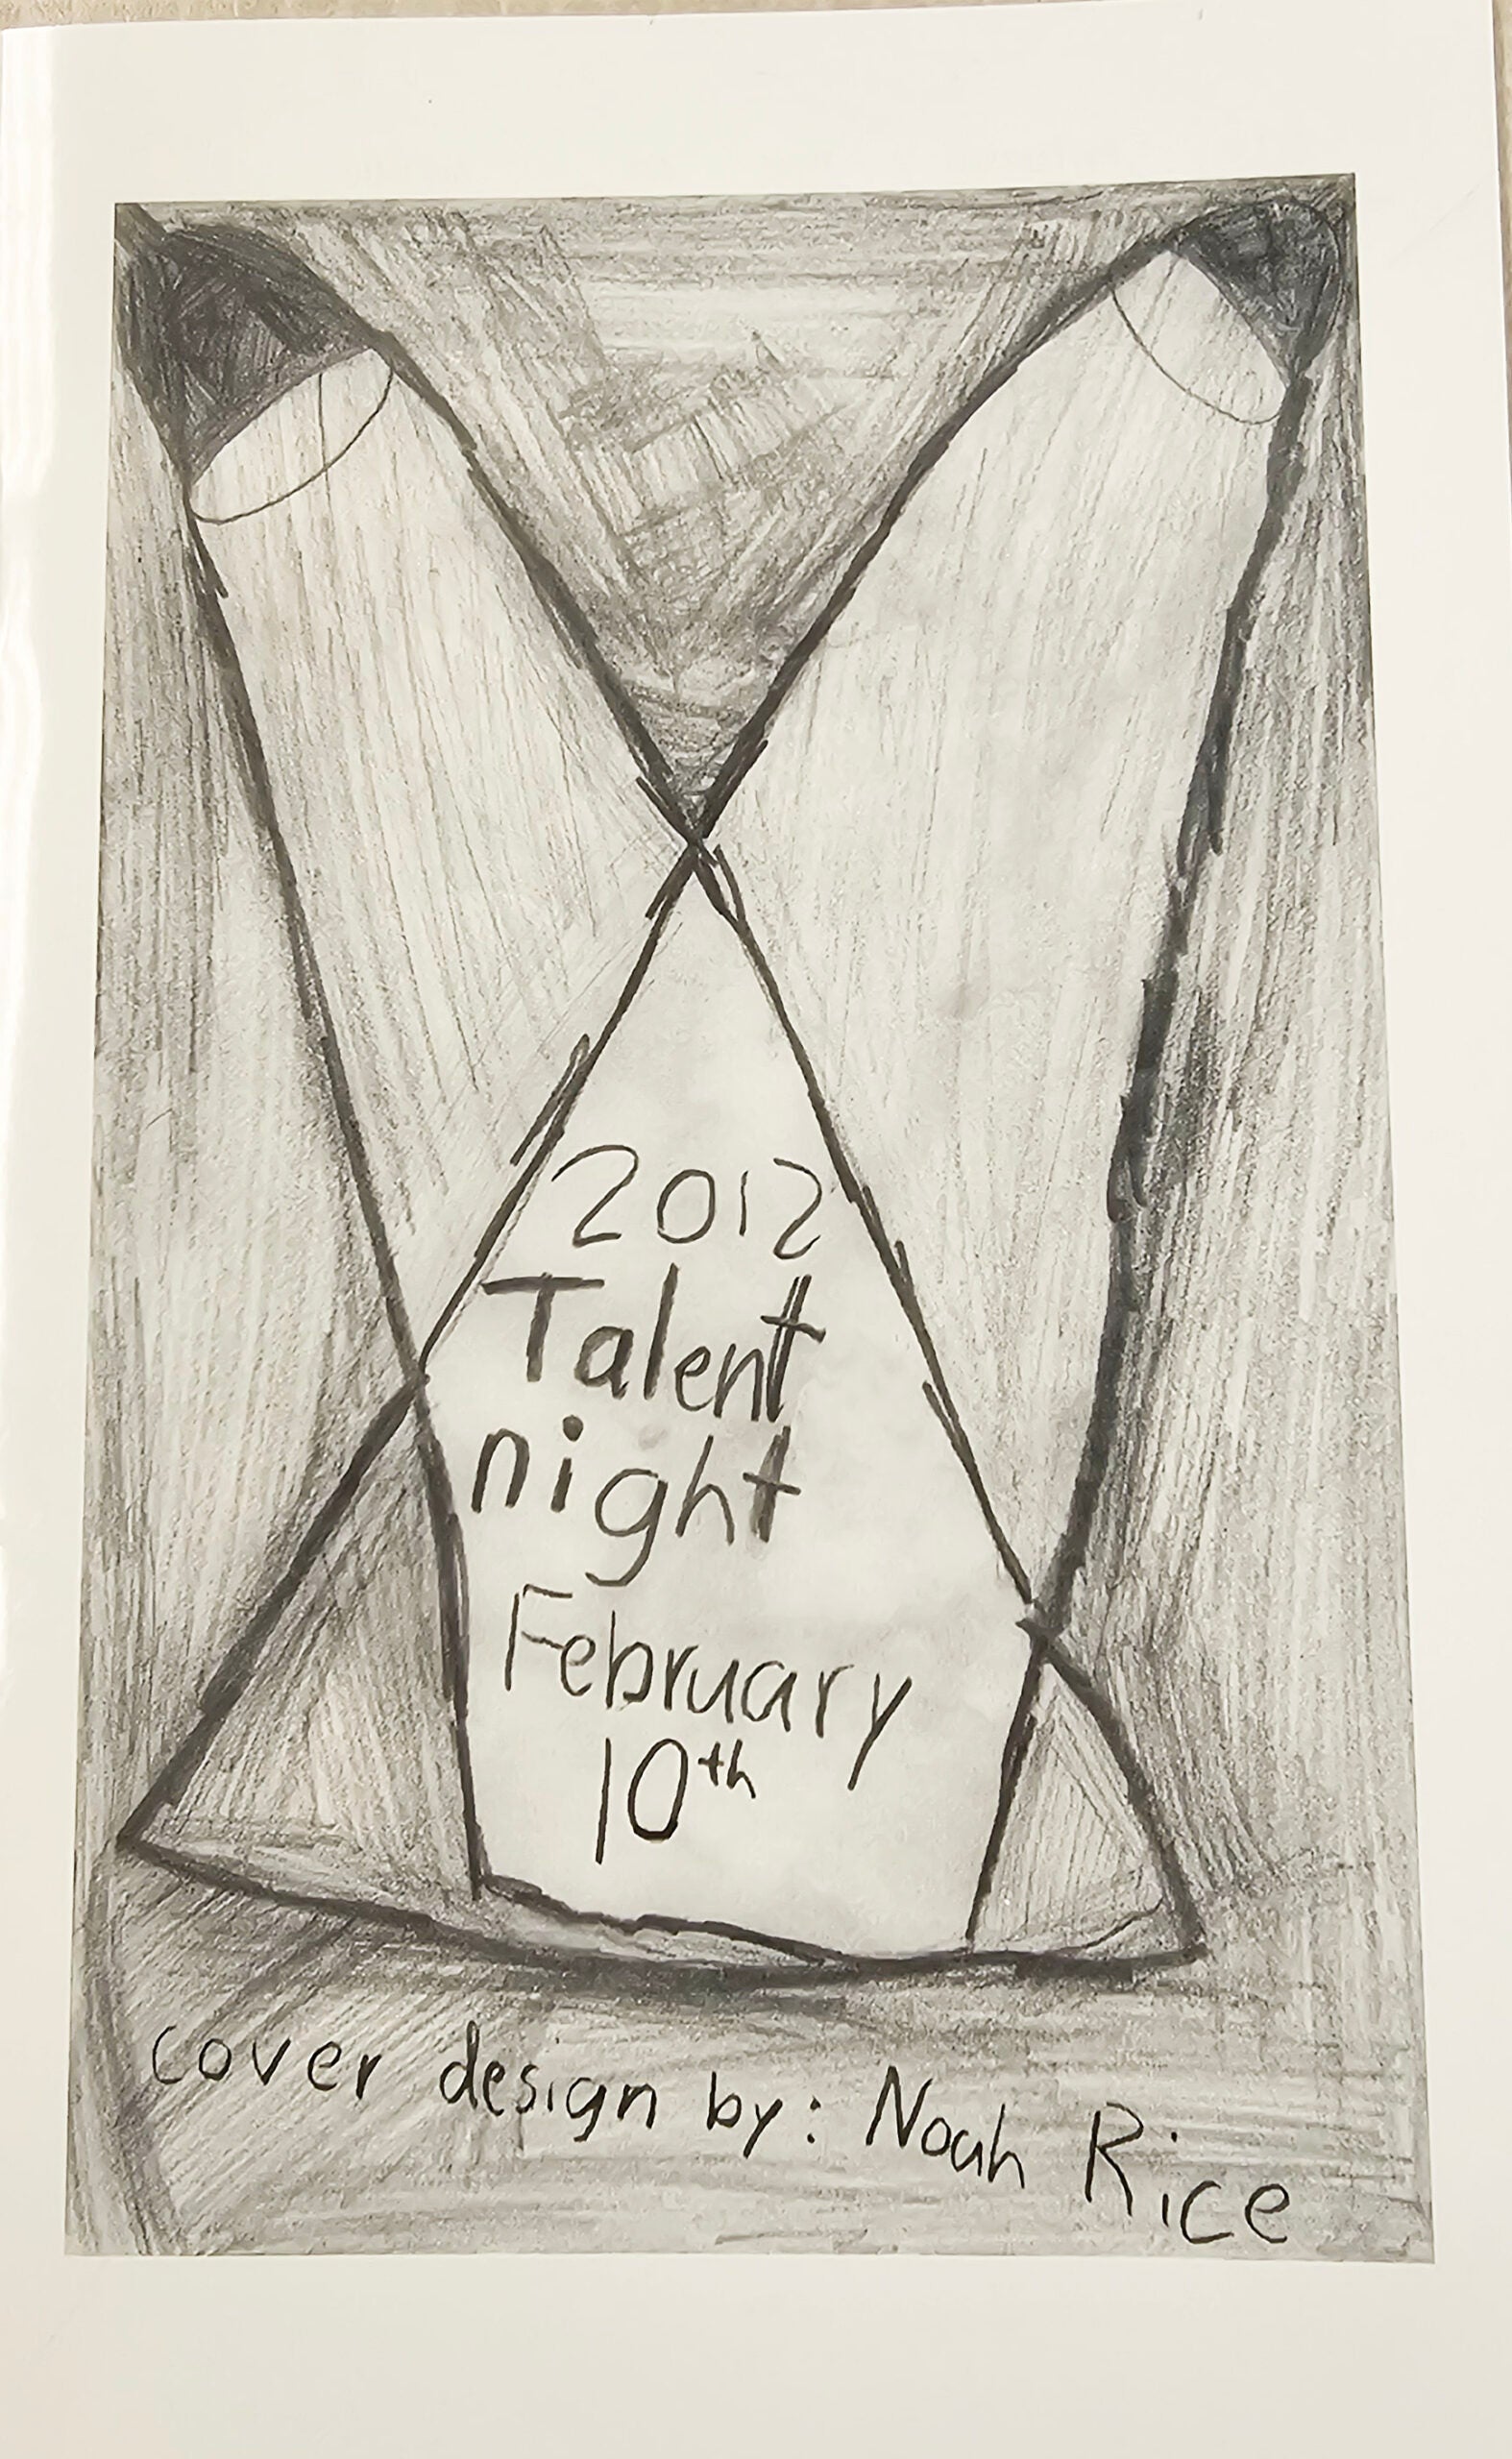 2012
Talent
night
February
10th
cover design by: Noah Rice